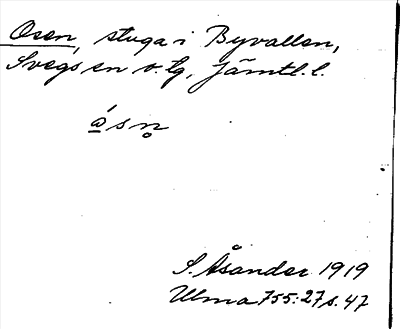 Osen, stuga i Byvallen,
Svegs sn o. tg, Jämtl. l.
ásn̥
S. Åsander 1919
Ulma 755:27 s. 47